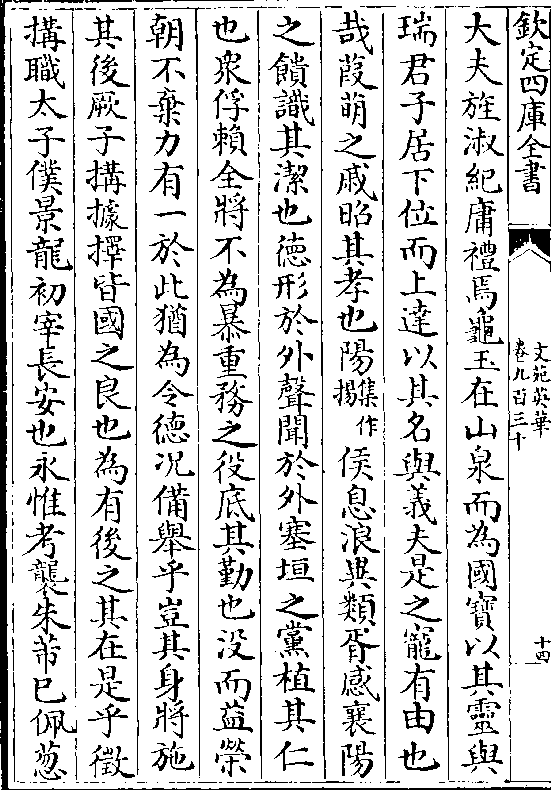 欽定四庫全書
文苑英華
卷九百三十
十四
大夫旌淑紀庸禮焉龜玉在山泉而為國寶以其靈與
瑞君子居下位而上達以其名與義夫是之寵有由也
哉葭萌之戚昭其孝也陽集作揚侯息浪異類胥感襄陽
之饋識其潔也德形於外聲聞於外塞垣之黨植其仁
也衆俘賴全將不為暴重務之役底其勤也没而益榮
朝不棄力有一於此猶為令德况備舉乎豈其身將施
其後厥子搆據擇皆國之良也為有後之其在是乎徵
搆職太子僕景龍初宰長安也永惟考襲朱芾已佩葱